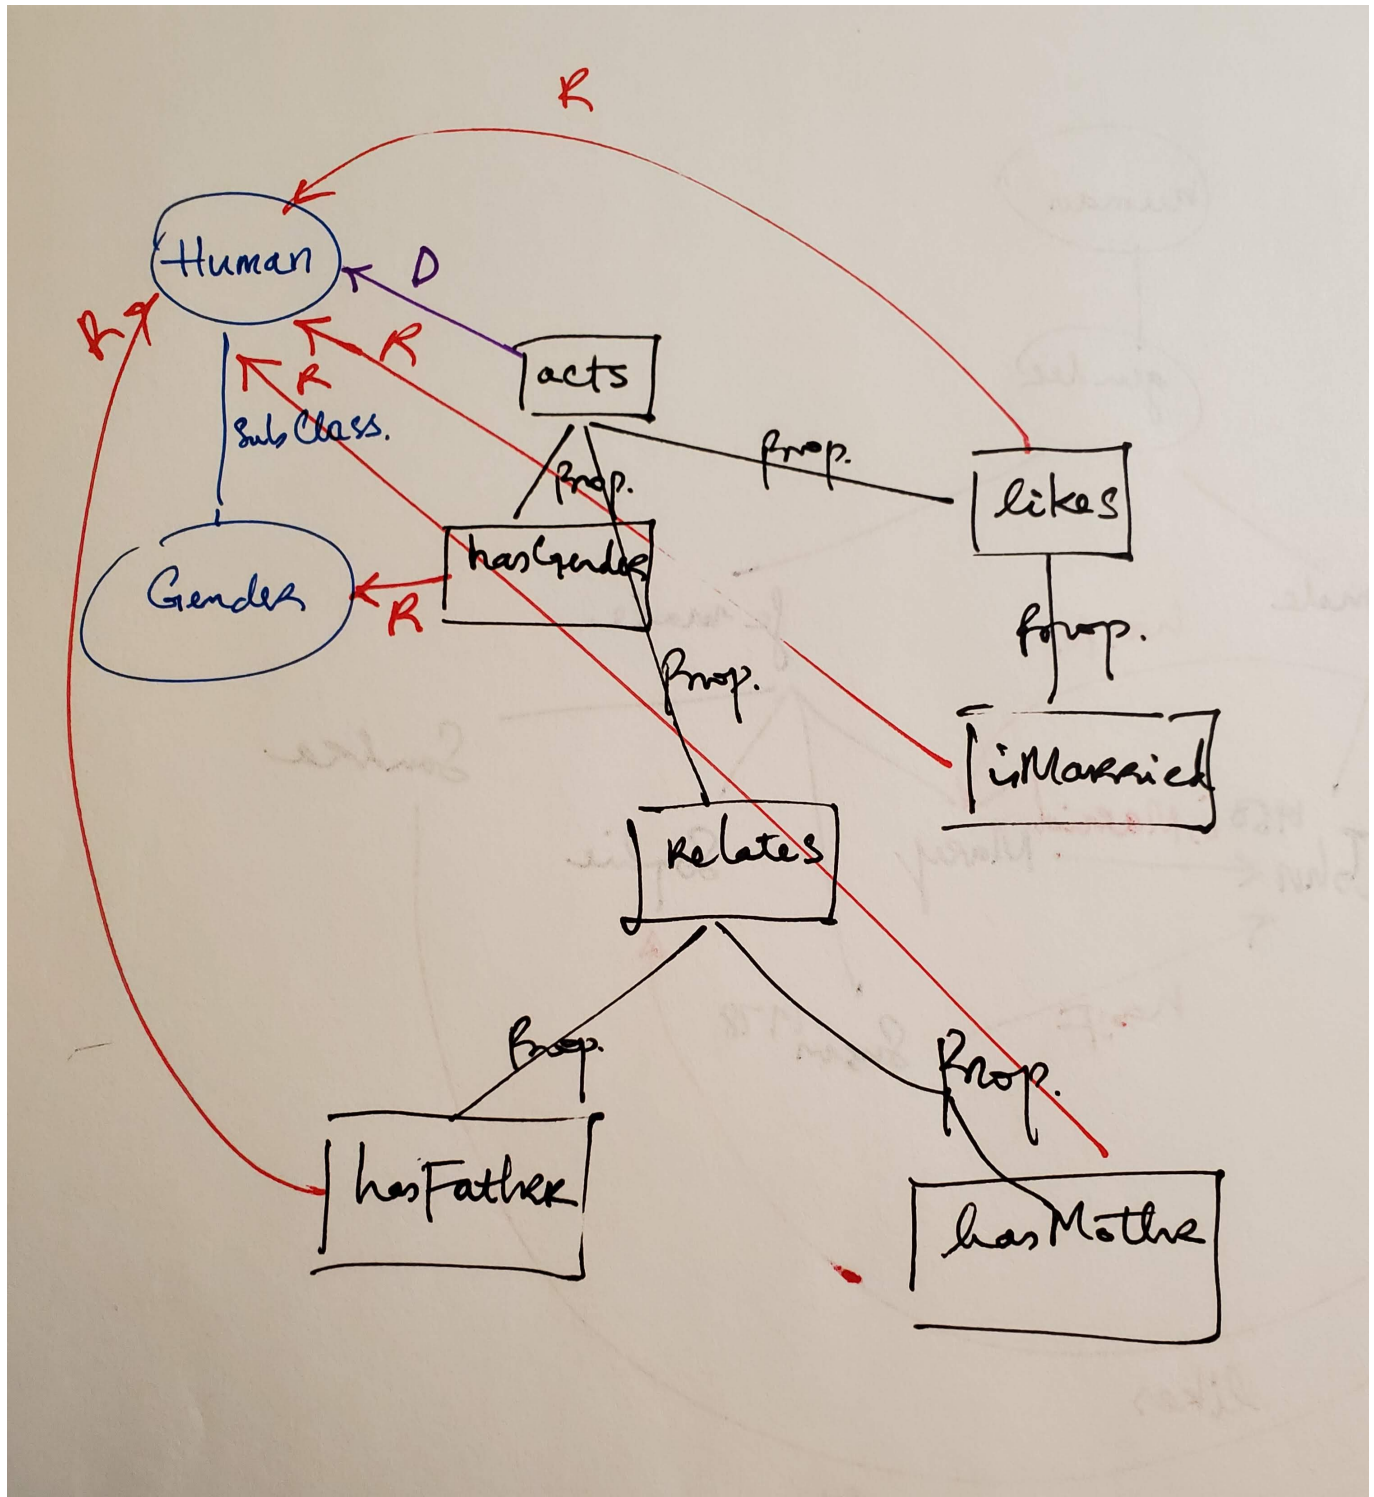 R
Human
D
R
R
R
acts
SubClass.
Prop.
Prop.
likes
hasGender
Gender
R
Prop.
Prop.
isMarried
Relates
Prop.
Prop.
hasFather
hasMothe